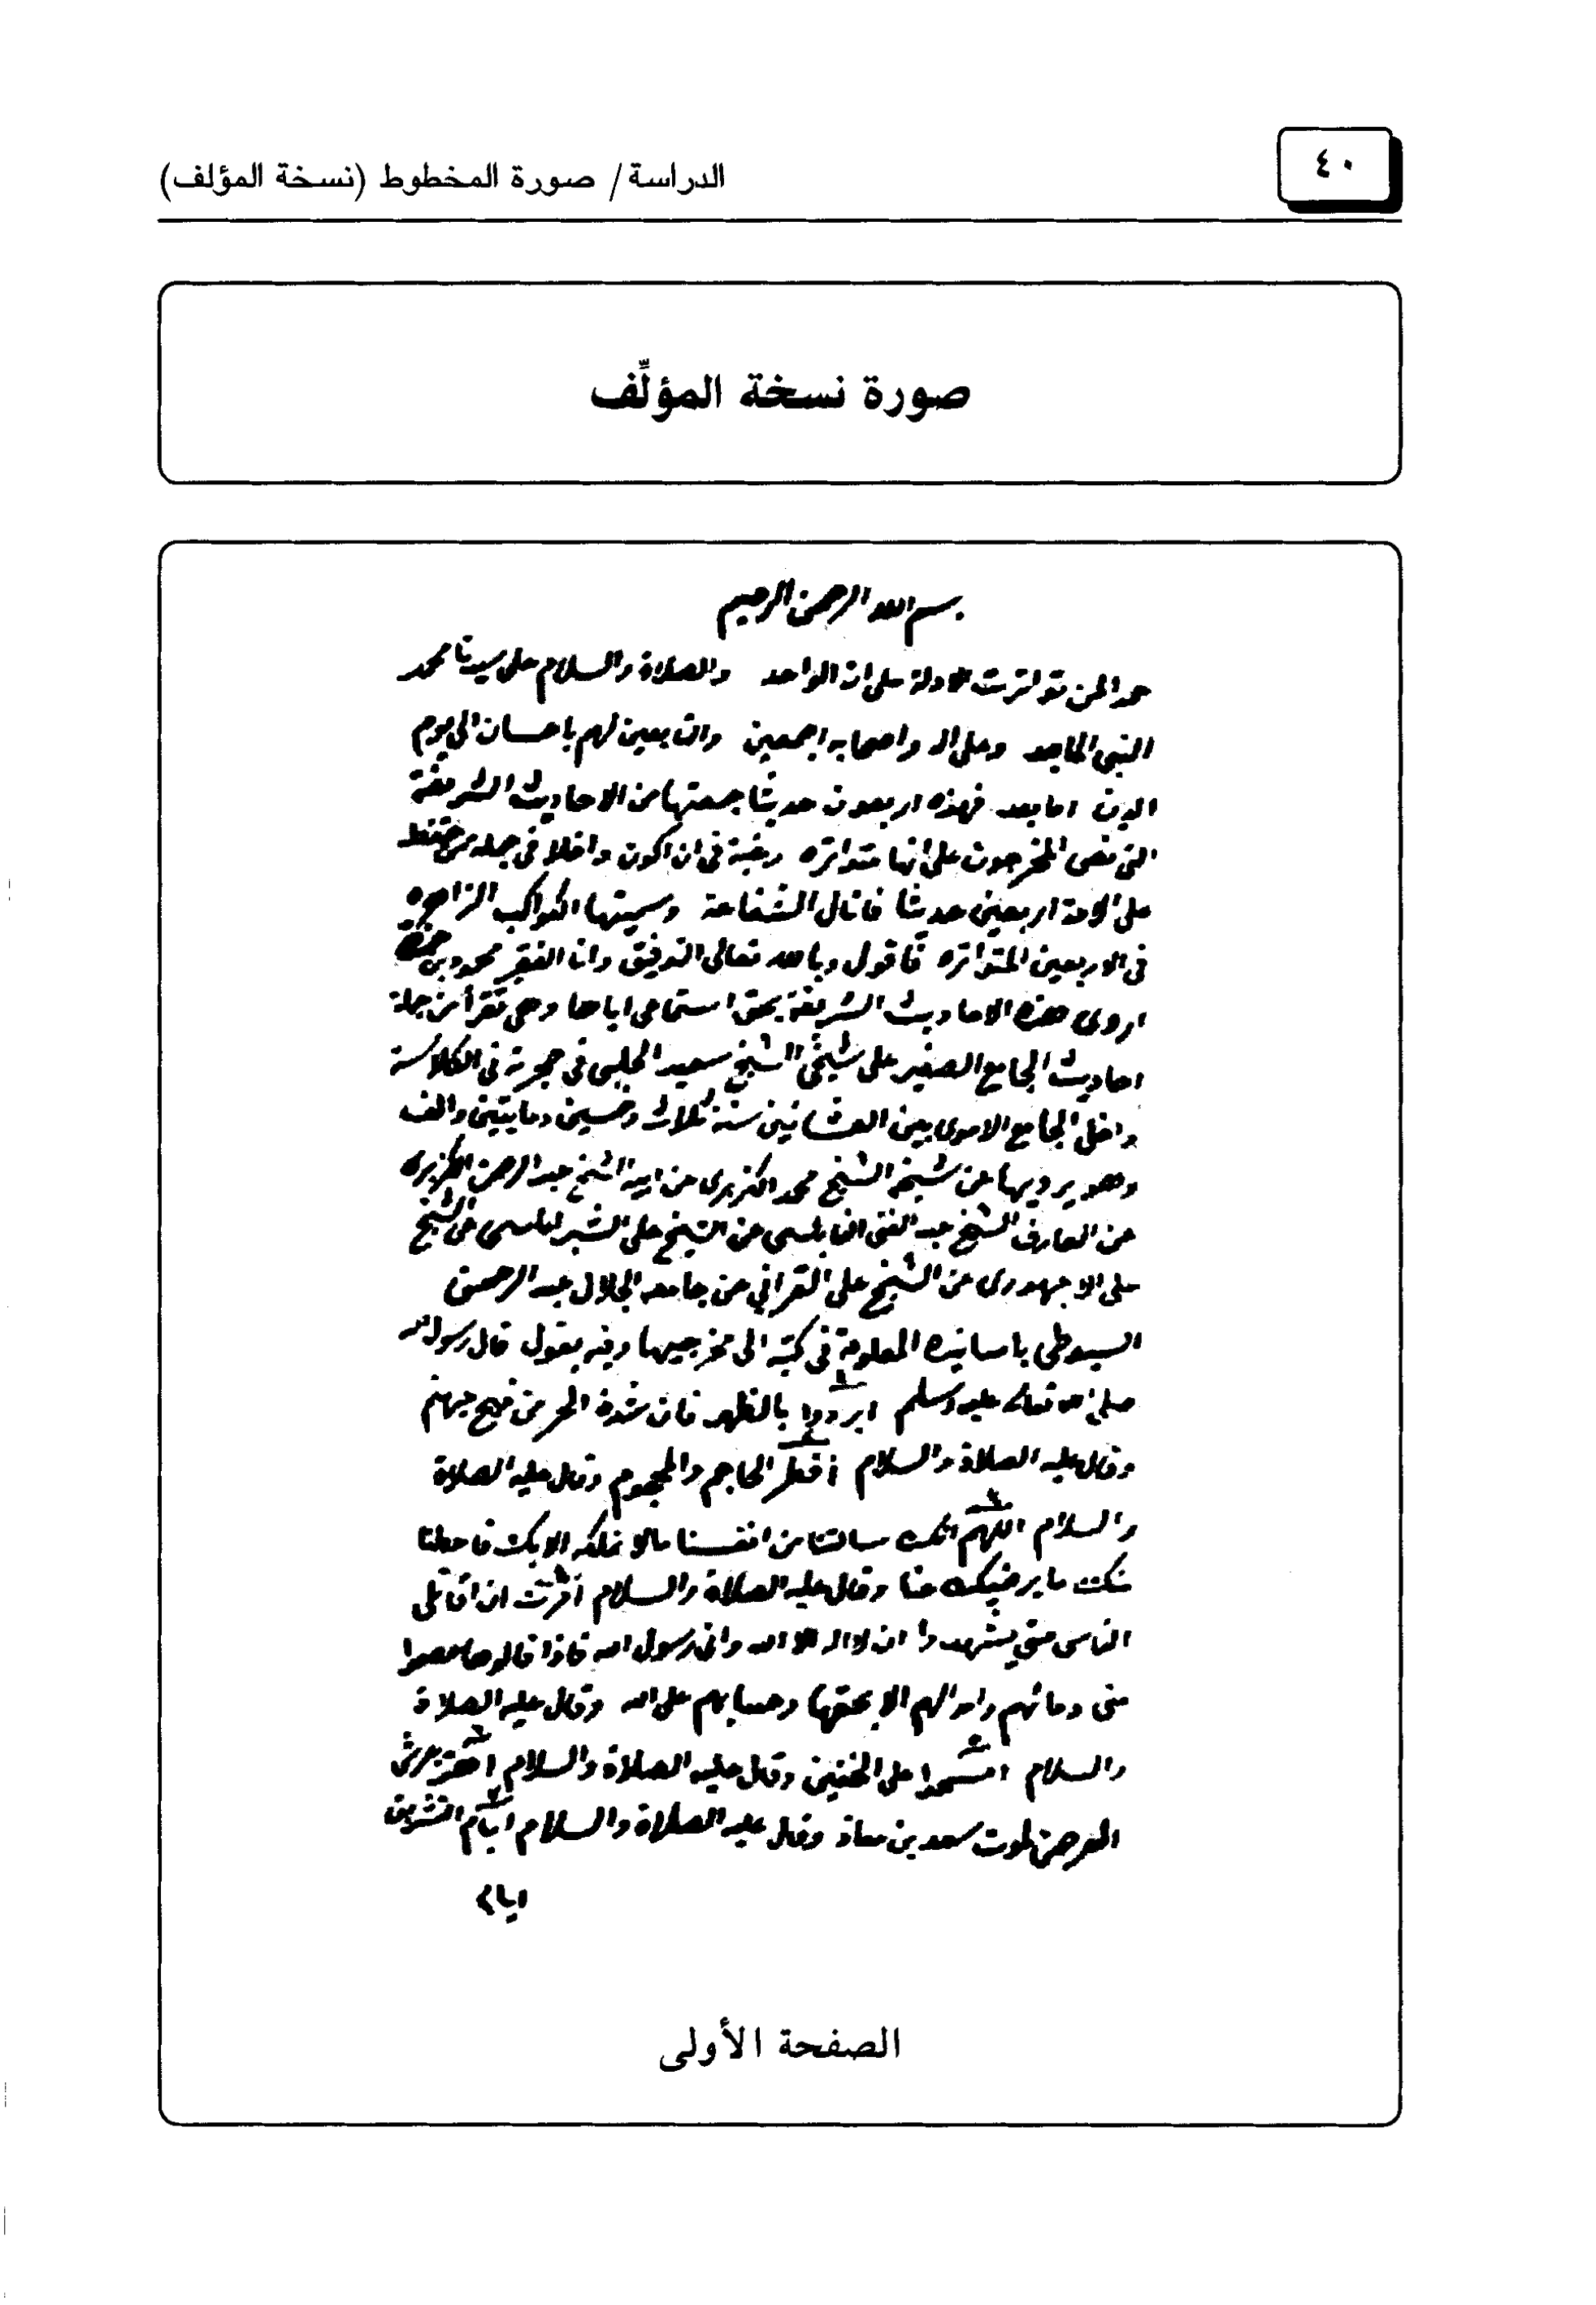 ٤٠
الدراسة / صورة المخطوط (نسخة المؤلف)
صورة نسخة المؤلِّف
بسم الله الرحمن الرحيم
حمدا لمن تواترت الادلة على انه الواحد والصلاة والسلام على سيدنا محمد
النبي الماجد وعلى اله واصحابه اجمعين والتابعين لهم باحسان الى يوم
الدين اما بعد فهذه اربعون حديثا جمعتها من الاحاديث الشريفة
التي نص المخرجون على انها متواتره رغبة في ان اكون داخلا في جملة من حفظ
على الامة اربعين حديثا فانال الشفاعة وسميتها الكواكب الزاهره
في الاربعين المتواتره فاقول وبالله تعالى التوفيق وانا الفقير محمود بن حمزة
اروي هذه الاحاديث الشريفة بحق استماعي اياها وهي تقرأ من جملة
احاديث الجامع الصغير على شيخي الشيخ سعيد الحلبي في حجرته في الكلاسة
داخل الجامع الاموي بين العشائين سنة ثلاث وخمسين ومايتين والف
وهو يرويها عن شيخه الشيخ محمد الكزبري عن ابيه الشيخ عبد الرحمن الكزبري
عن العارف الشيخ عبد الغني النابلسي عن الشيخ على الشبراملسي عن الشيخ
على الاجهوري عن الشيخ على القرافي عن جامعه الجلال عبد الرحمن
السيوطي باسانيده المعلومة في كتبه الى مخرجيها وفيه يقول قال رسول الله
صلى الله تعالى عليه وسلم ابردوا بالظهر فان شدة الحر من فيح جهنم
وقال عليه الصلاة والسلام أفطر الحاجم والمحجوم وقال عليه الصلاة
والسلام اللهم انك سالتنا من انفسنا مالا نملكه الا بك فاعطنا
منك ما يرضيك عنا وقال عليه الصلاة والسلام أمرت ان اقاتل
الناس حتى يشهدوا ان لا اله الا الله واني رسول الله فاذا قالوها عصموا
مني دمائهم واموالهم الا بحقها وحسابهم على الله وقال عليه الصلاة
والسلام امسحوا على الخفين وقال عليه الصلاة والسلام اهتز عرش
الرحمن لموت سعد بن معاذ وقال عليه الصلاة والسلام ايام التشريق
ايام
الصفحة الأولى